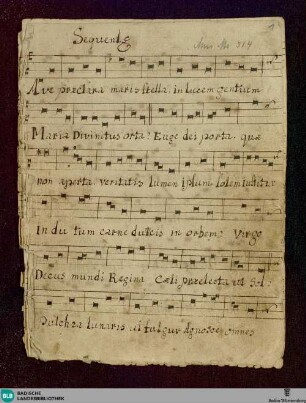 Sequentz
Alve præclara maris stella, in lucem gentium
Maria Divinitus orta: Euge dei porta, quæ
non aperta veritatis lumen ipsum solem iustitiæ
Indutum carne ducis in orbem: Virgo
Decus mundi Regina Cæli prælecta ut sol:
Pulchra lunaris ut fulgur Agnosce omnes
BLB BADISCHE LANDESBIBLIOTHEK
Baden-Württemberg